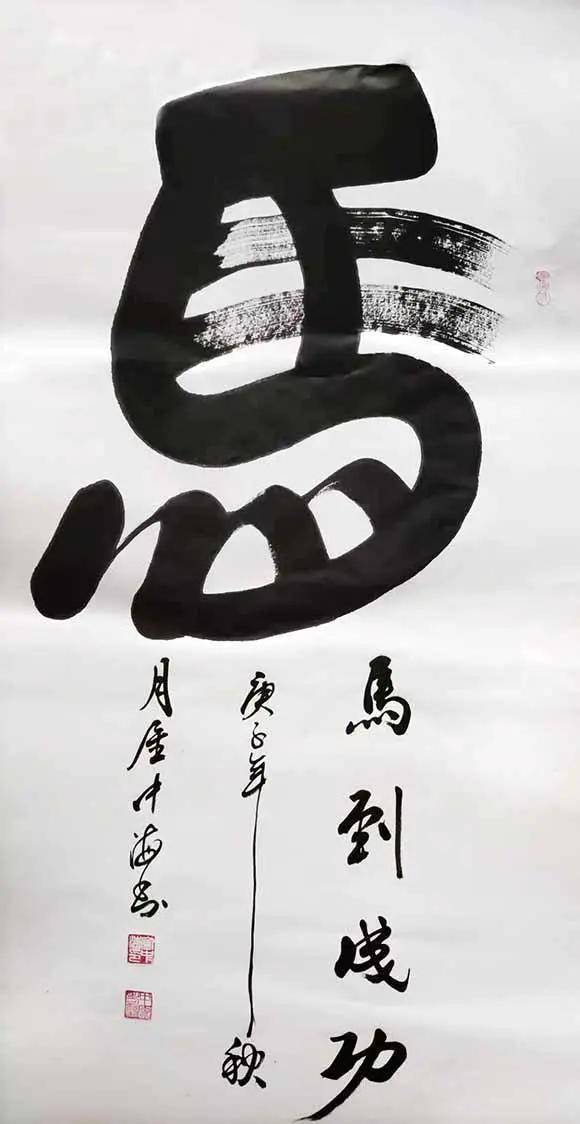 馬
馬到成功
庚子年秋
月金中海书